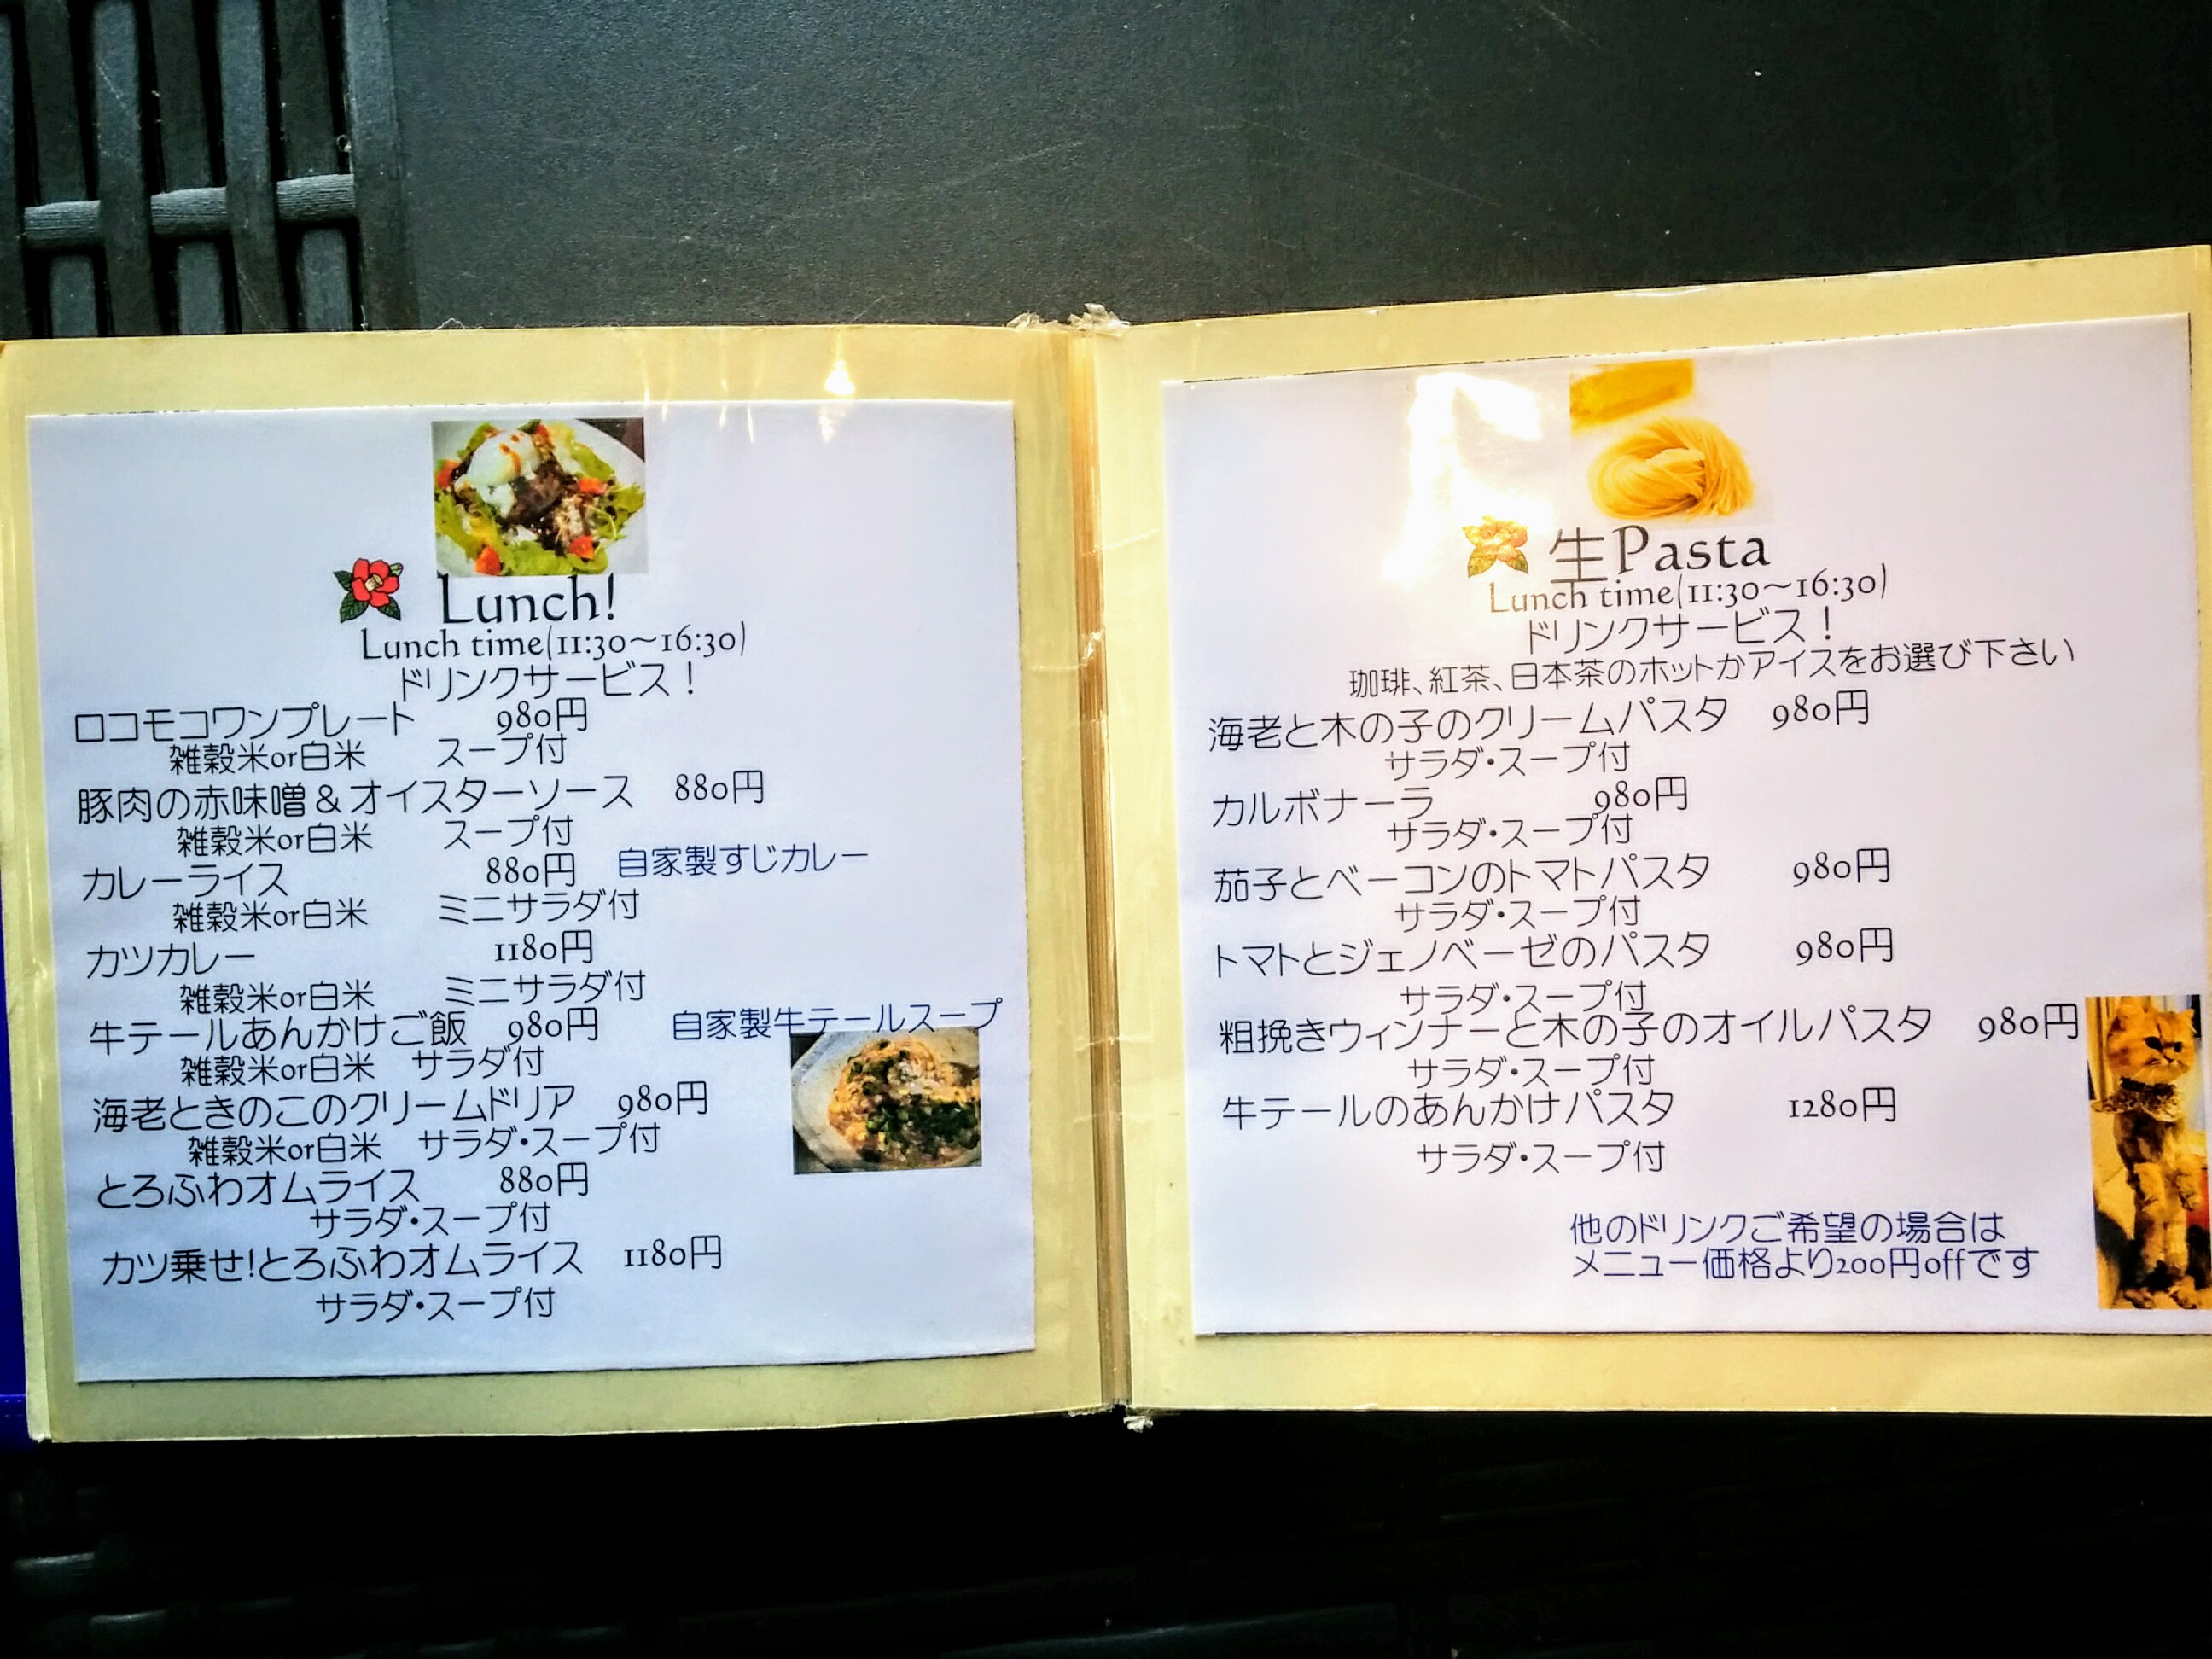 Lunch!
Lunch time(11:30～16:30)
ドリンクサービス！
ロコモコワンプレート 980円
雑穀米or白米 スープ付
豚肉の赤味噌＆オイスターソース 880円
雑穀米or白米 スープ付
カレーライス 880円 自家製すじカレー
雑穀米or白米 ミニサラダ付
カツカレー 1180円
雑穀米or白米 ミニサラダ付
牛テールあんかけご飯 980円 自家製牛テールスープ
雑穀米or白米 サラダ付
海老ときのこのクリームドリア 980円
雑穀米or白米 サラダ・スープ付
とろふわオムライス 880円
サラダ・スープ付
カツ乗せ!とろふわオムライス 1180円
サラダ・スープ付
生Pasta
Lunch time(11:30～16:30)
ドリンクサービス！
珈琲、紅茶、日本茶のホットかアイスをお選び下さい
海老と木の子のクリームパスタ 980円
サラダ・スープ付
カルボナーラ 980円
サラダ・スープ付
茄子とベーコンのトマトパスタ 980円
サラダ・スープ付
トマトとジェノベーゼのパスタ 980円
サラダ・スープ付
粗挽きウィンナーと木の子のオイルパスタ 980円
サラダ・スープ付
牛テールのあんかけパスタ 1280円
サラダ・スープ付
他のドリンクご希望の場合は
メニュー価格より200円offです